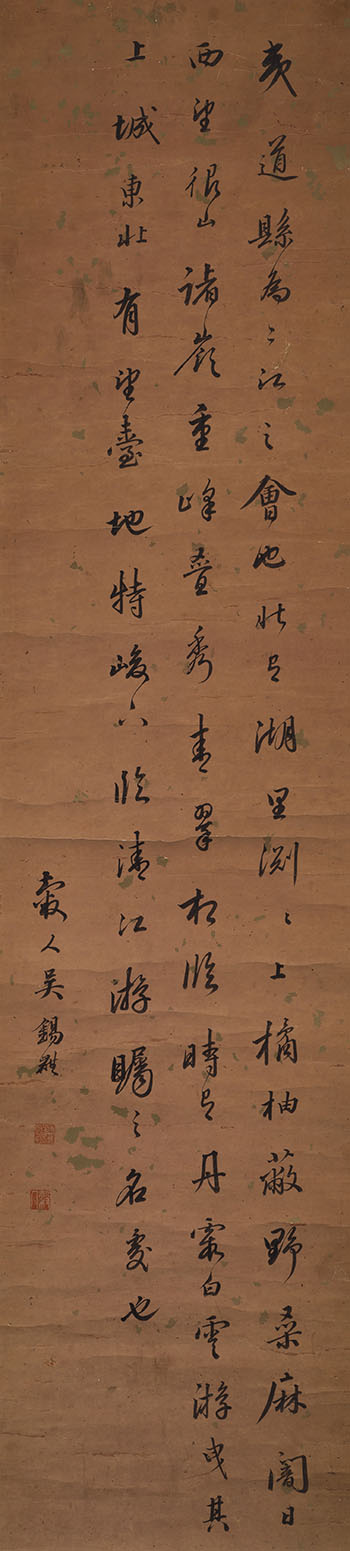 夷道縣為〻江之會也北有湖里淵〻上橘柚蔽野桑麻闇日
西望佷山諸嶺重峰疊秀青翠相臨時有丹霞白雲游曳其
上城東北有望臺地特峻下臨清江游矚之名處也
穀人吳錫麒